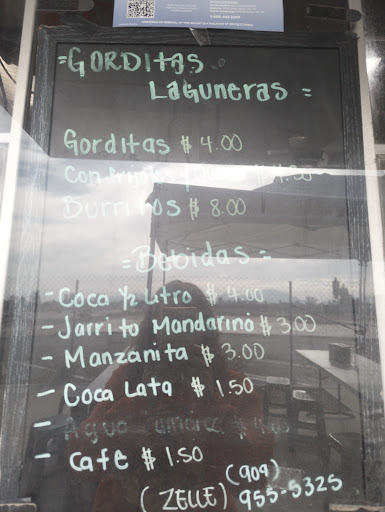 =GORDITAS
LAGUNERAS =
Gorditas $ 4.00
Con frijoles y queso $ 4.50
Burritos $ 8.00
=Bebidas=
- Coca ½ Litro $ 4.00
- Jarrito Mandarino $ 3.00
- Manzanita $ 3.00
- Coca Lata $ 1.50
- Agua
- Cafe $ 1.50
(ZELLE) (909) 955-5325